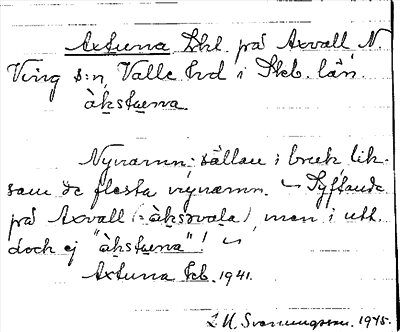 Axtuna Lhl. på Axvall N.
Ving s:n, Valle hd i Skb. län.
àkstɯna
Nynamn; sällan i bruk lik-
som de flesta nynamn. ~ Syftande
på Axvall (: àksvala), men i utt.
dock ej "àkstɯna"! ~
Axtuna Eb. 1941.
1945.